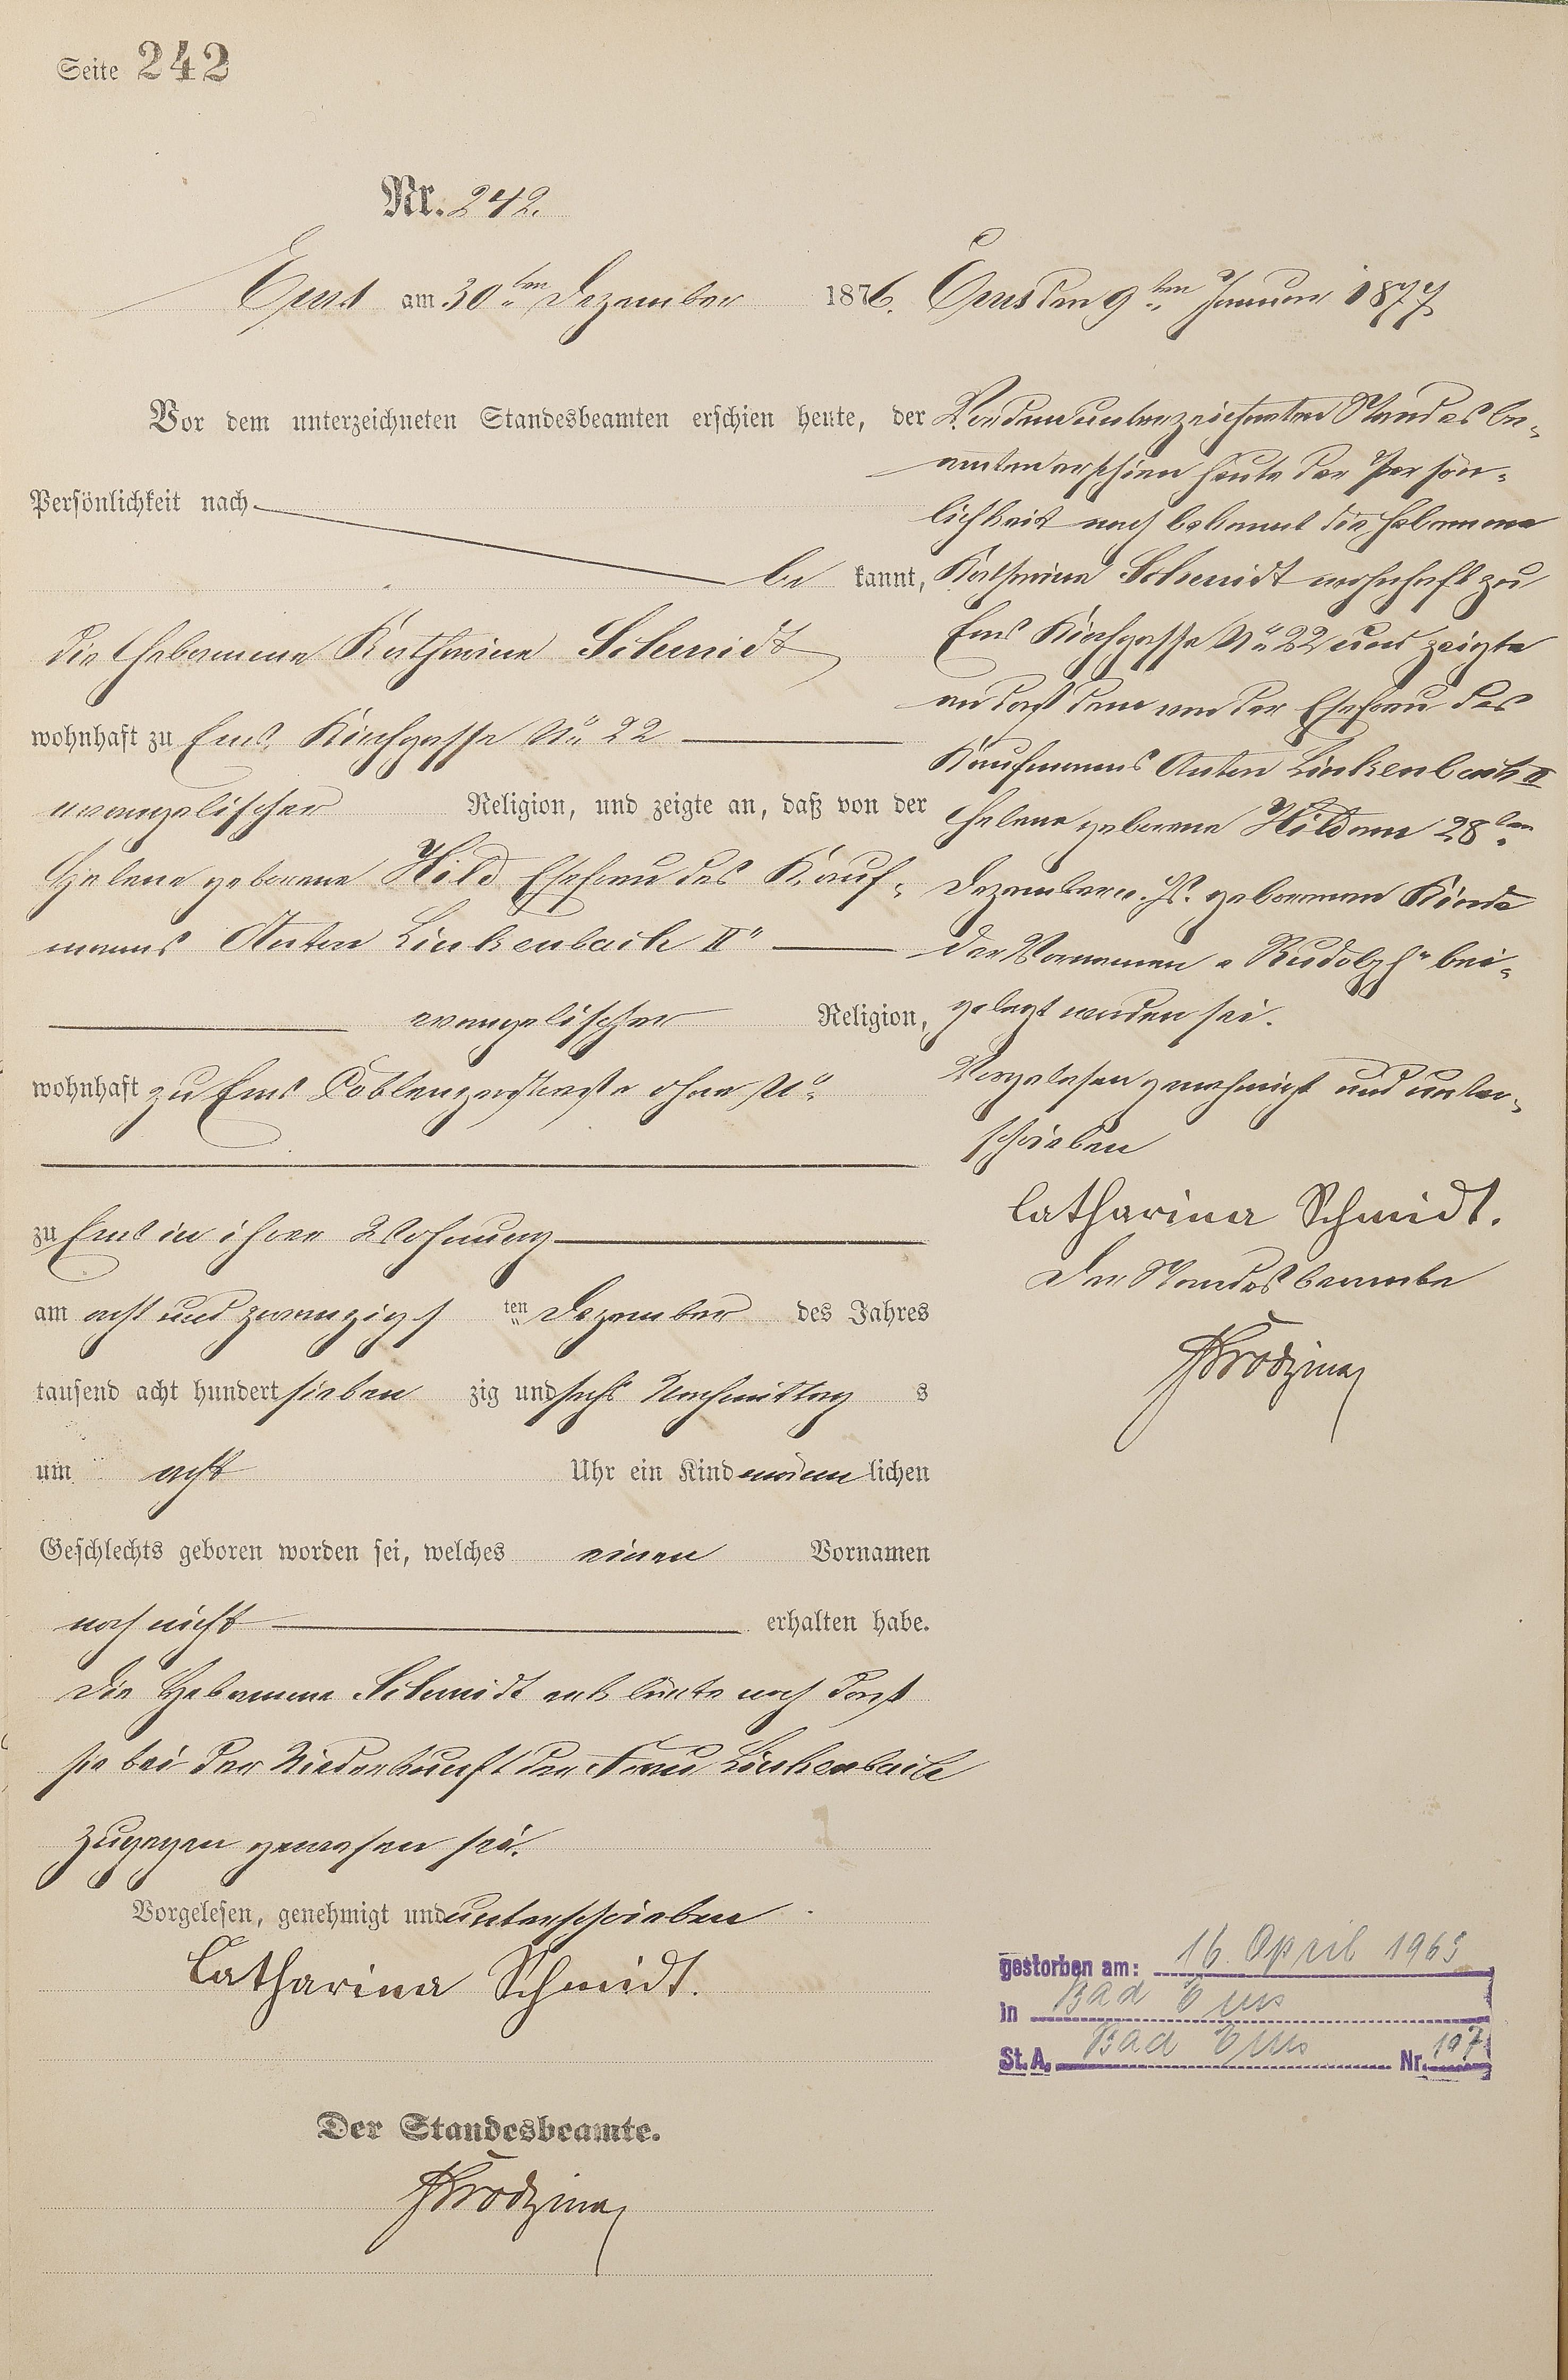 Seite 242
Nr. 242.
Ems am 30ten Dezember 1876.
Vor dem unterzeichneten Standesbeamten erschien heute, der
Persönlichkeit nach
be kannt,
die Hebamme Katharina Schmidt
wohnhaft zu Ems, Kirchgasse No 22
evangelischer Religion, und zeigte an, daß von der
Helene geborene Hild Ehefrau des Kauf-
manns Anton Linkenbach II
evangelischer Religion,
wohnhaft zu Ems Coblenzerstraße ohne No
zu Ems in ihrer Wohnung
am acht und zwanzigs ten Dezember des Jahres
tausend acht hundert sieben zig und sechs Nachmittag s
um acht Uhr ein Kind männ lichen
Geschlechts geboren worden sei, welches einen Vornamen
noch nicht erhalten habe.
Die Hebamme Schmidt erklärte noch daß
sie bei der Niederkunft der Frau Linkenbach
zugegen gewesen sei.
Vorgelesen, genehmigt und unterschrieben
Catharina Schmidt.
Der Standesbeamte.
Ems den 9ten Januar 1877
Vor dem unterzeichneten Standesbe-
amten erschien heute der Persön-
lichkeit nach bekannt die Hebamme
Katharina Schmidt wohnhaft zu
Ems Kirchgasse No 22 und zeigte
an daß dem von der Ehefrau des
Kaufmanns Anton Linkenbach II
Helene geborene Hild am 28ten
Dezember v. Js. geborenen Kinde
der Vornamen "Rudolph" bei-
gelegt worden sei.
Vorgelesen genehmigt und unter-
schrieben
Catharina Schmidt.
Der Standesbeamte
gestorben am: 16. April 1965
in Bad Ems
St. A. Bad Ems Nr. 197